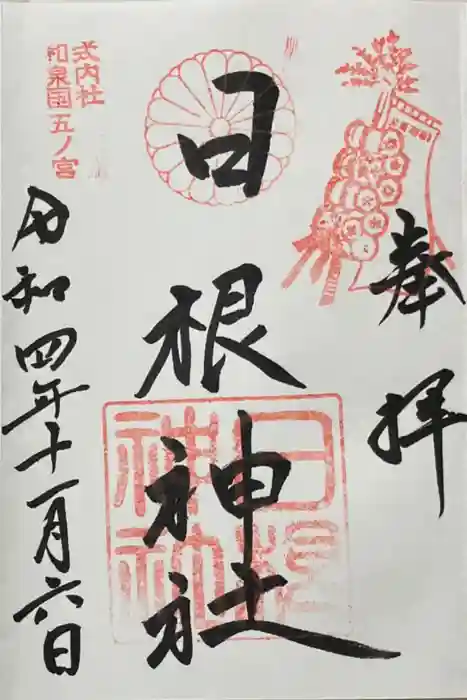 奉拝
日根神社
日根神社
式内社
和泉国五ノ宮
令和四年十一月六日